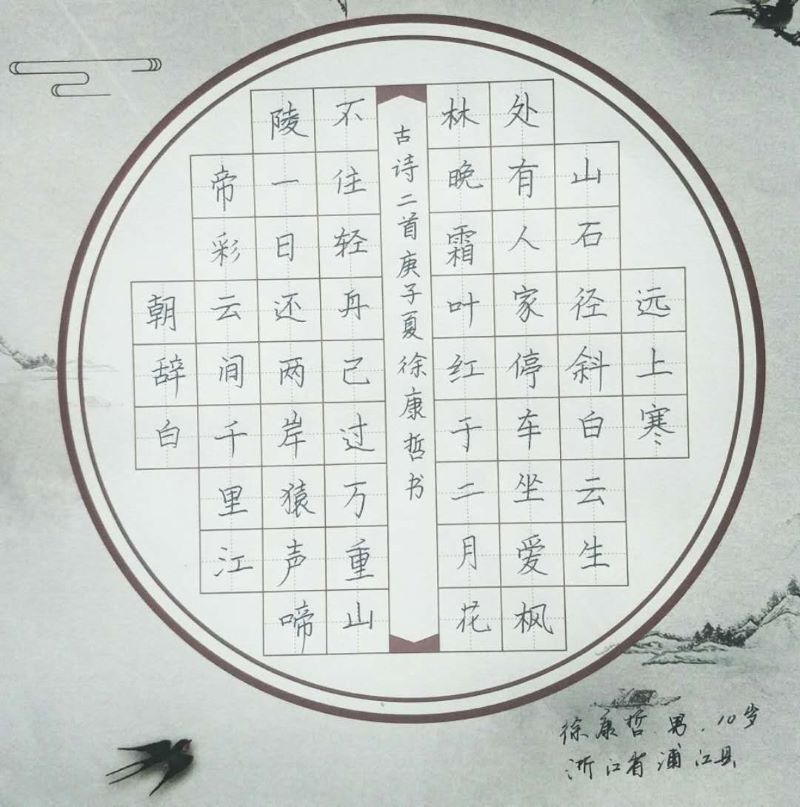 远上寒
山石径斜白云生
处有人家停车坐爱枫
林晚霜叶红于二月花
朝辞白
帝彩云间千里江
陵一日还两岸猿声啼
不住轻舟已过万重山
古诗二首庚子夏徐康哲书
徐康哲 男.10岁
浙江省浦江县